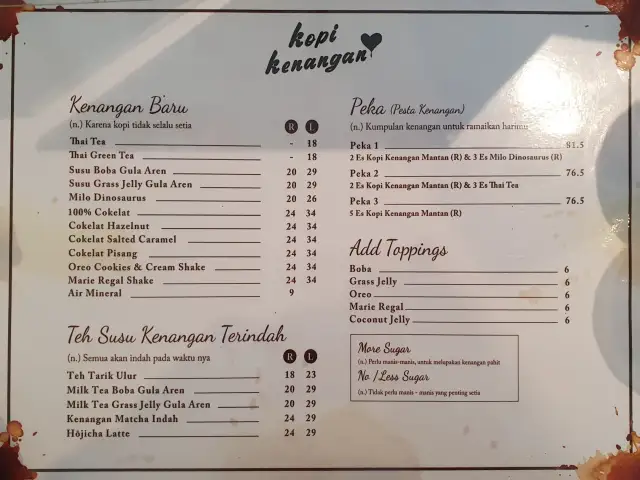 kopi
kenangan
Kenangan Baru
(n.) Karena kopi tidak selalu setia R L
Thai Tea - 18
Thai Green Tea - 18
Susu Boba Gula Aren 20 29
Susu Grass Jelly Gula Aren 20 29
Milo Dinosaurus 20 26
100% Cokelat 24 34
Cokelat Hazelnut 24 34
Cokelat Salted Caramel 24 34
Cokelat Pisang 24 34
Oreo Cookies & Cream Shake 24 34
Marie Regal Shake 24 34
Air Mineral 9
Teh Susu Kenangan Terindah
(n.) Semua akan indah pada waktu nya R L
Teh Tarik Ulur 18 23
Milk Tea Boba Gula Aren 20 29
Milk Tea Grass Jelly Gula Aren 20 29
Kenangan Matcha Indah 24 29
Hōjicha Latte 24 29
Peka (Pesta Kenangan)
(n.) Kumpulan kenangan untuk ramaikan harimu
Peka 1 81.5
2 Es Kopi Kenangan Mantan (R) & 3 Es Milo Dinosaurus (R)
Peka 2 76.5
2 Es Kopi Kenangan Mantan (R) & 3 Es Thai Tea
Peka 3 76.5
5 Es Kopi Kenangan Mantan (R)
Add Toppings
Boba 6
Grass Jelly 6
Oreo 6
Marie Regal 6
Coconut Jelly 6
More Sugar
(n.) Perlu manis-manis, untuk melupakan kenangan pahit
No / Less Sugar
(n.) Tidak perlu manis - manis yang penting setia